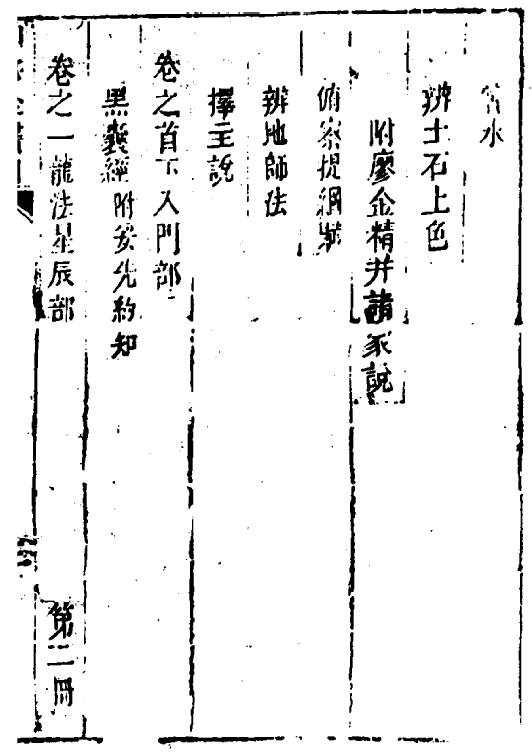 嘗水
辨土石上色
附廖金精并諸家說
俯察提綱
辨地師法
擇主說
卷之首下入門部
黑囊經 附安先約知
卷之一龍法星辰部 第二冊